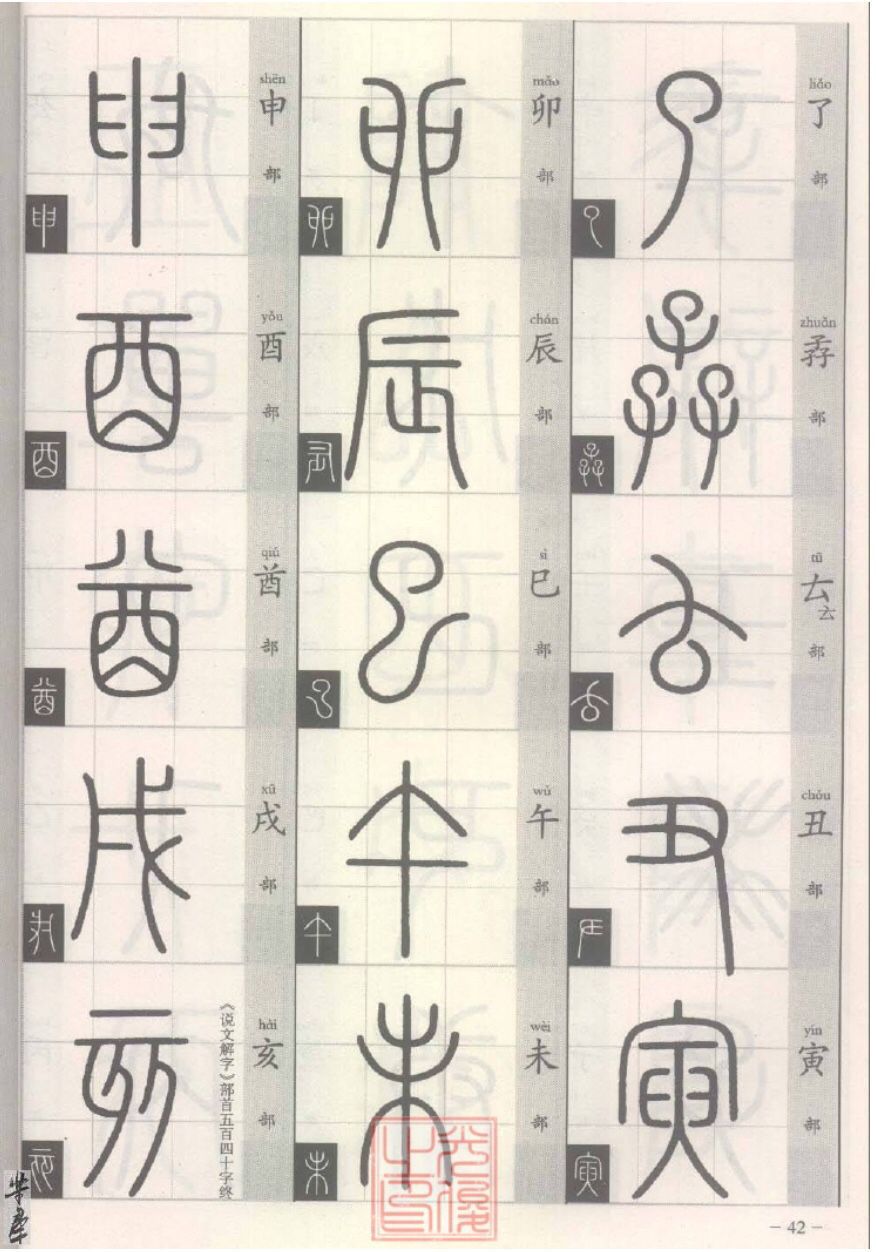 liǎo
了
部
zhuǎn
孨
部
tū
𠫓
云
部
chǒu
丑
部
yín
寅
部
mǎo
卯
部
chén
辰
部
sì
巳
部
wǔ
午
部
wèi
未
部
shēn
申
部
yǒu
酉
部
qiú
酋
部
xū
戌
部
hài
亥
部
《说文解字》部首五百四十字终
－42－